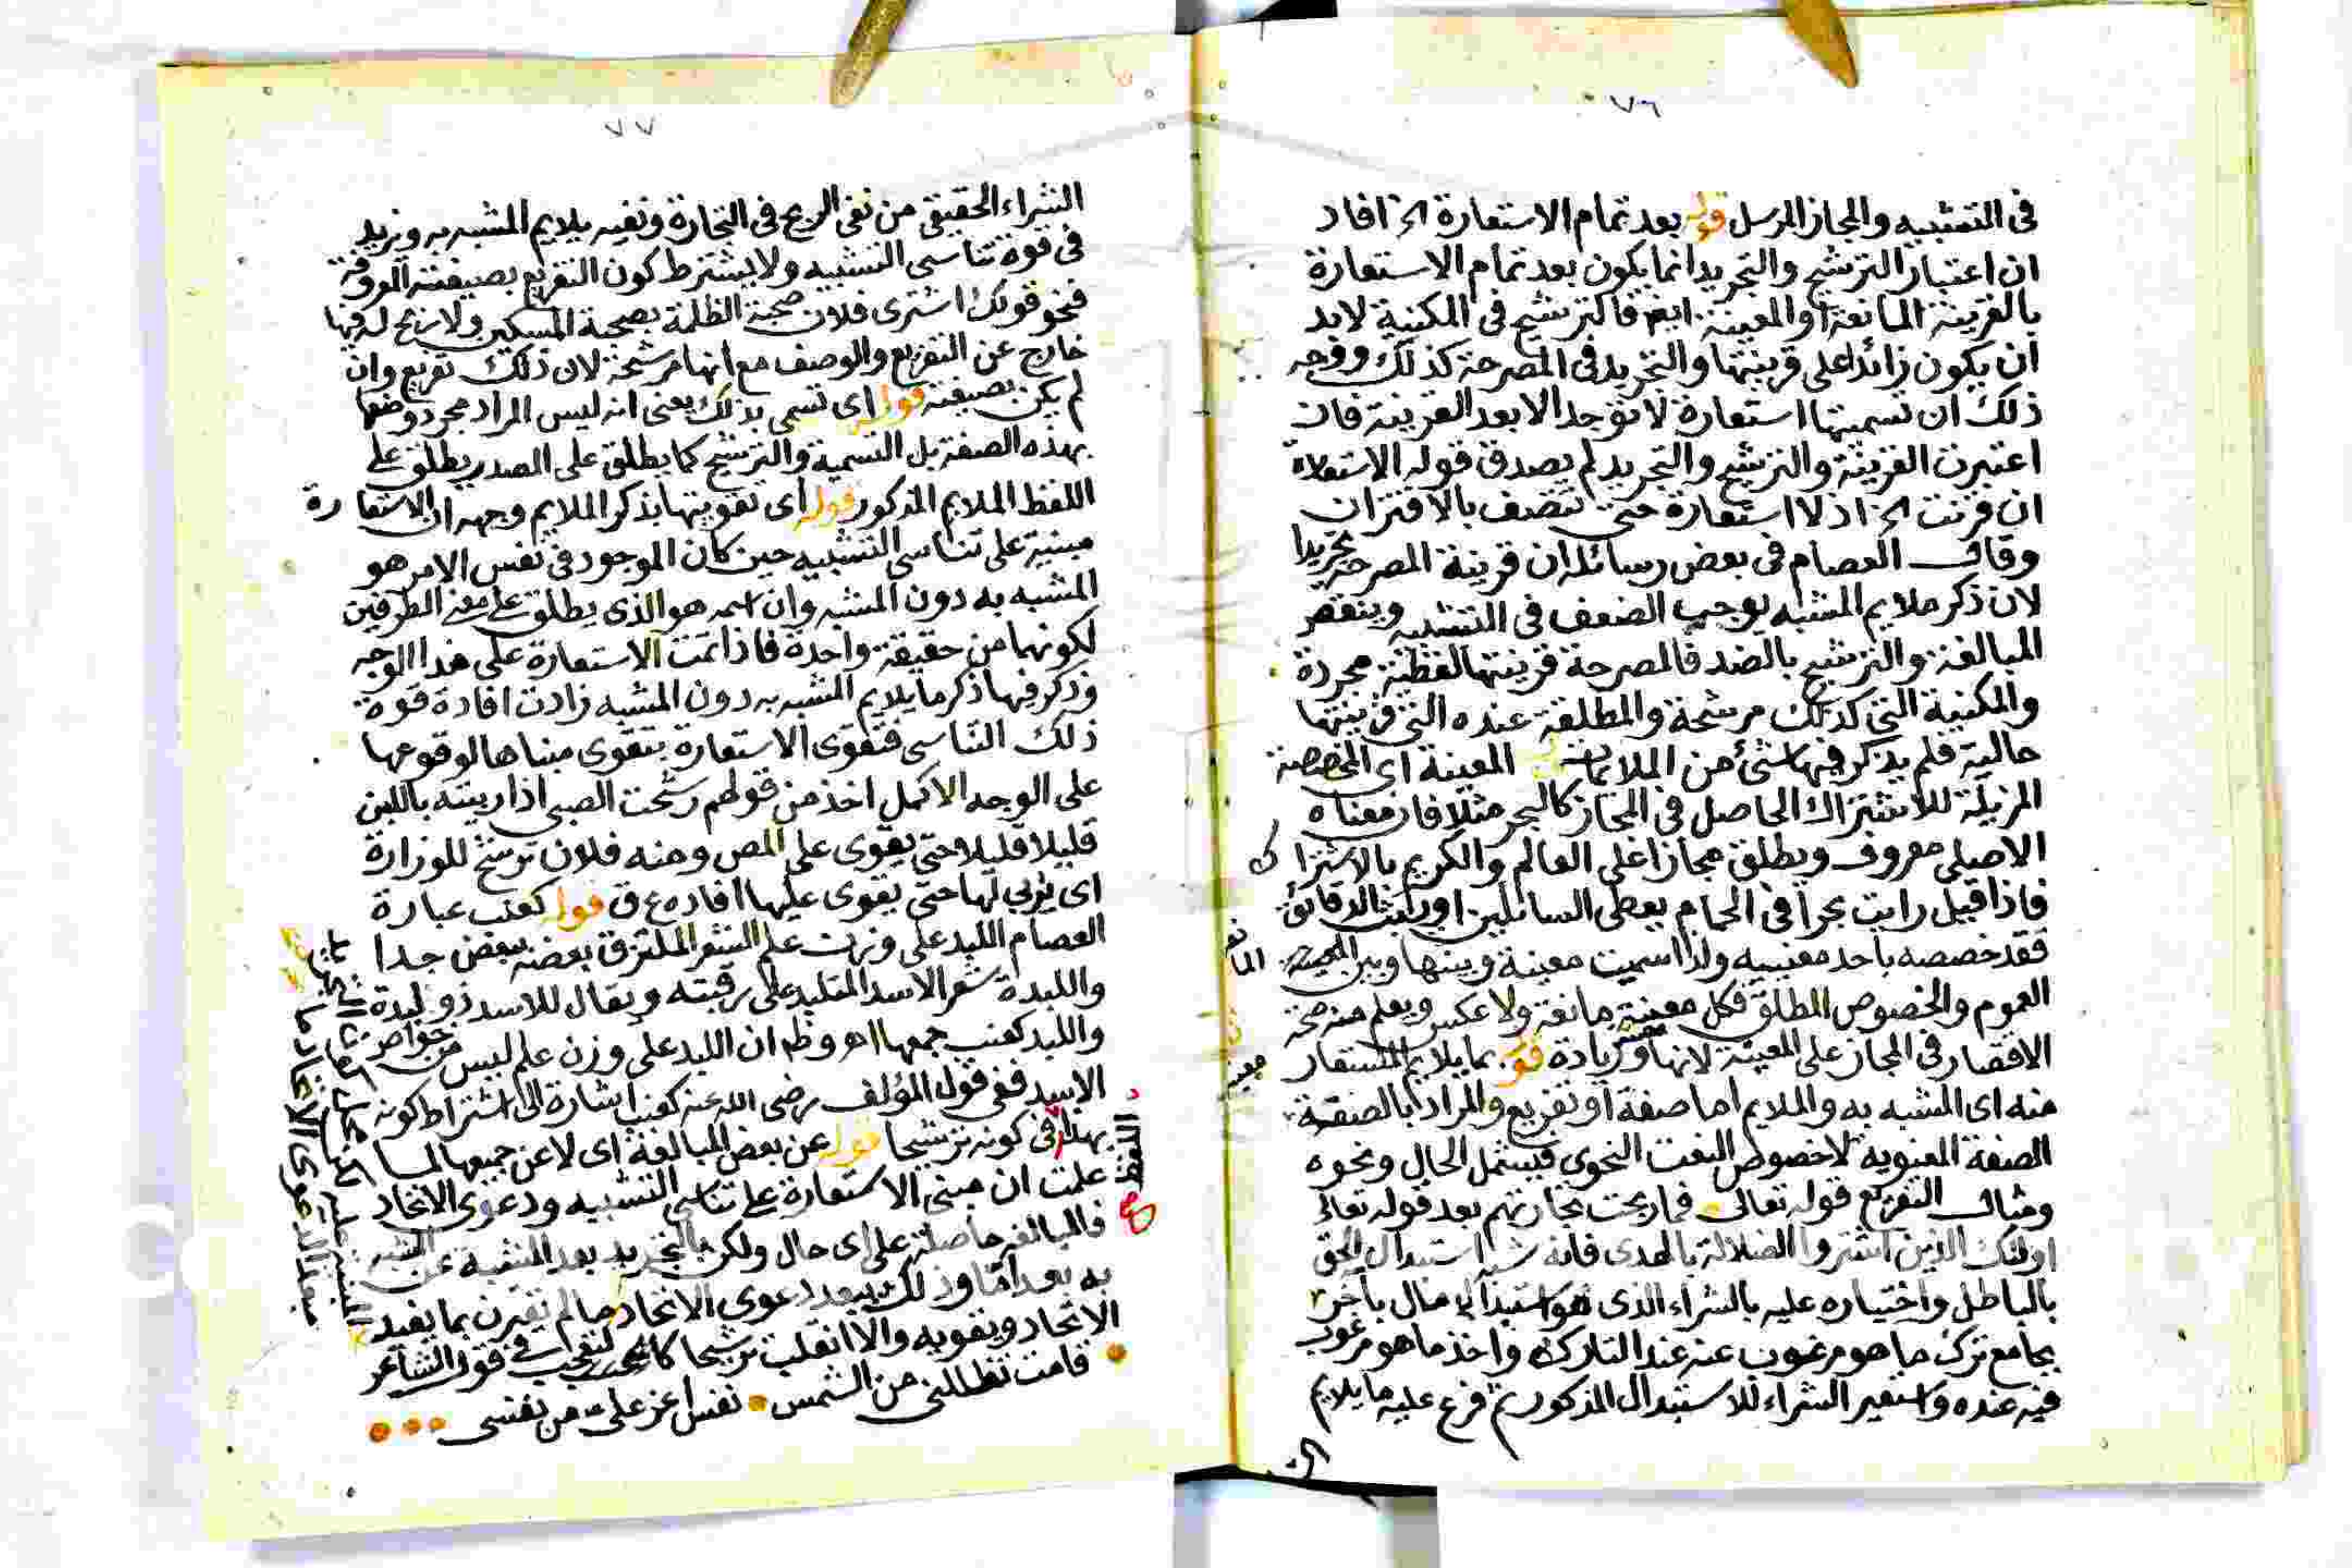 ٧٦
فى التشبيه والمجاز المرسل قوله بعد تمام الاستعارة الخ افاد
ان اعتبار الترشيح والتجريد انما يكون بعد تمام الاستعارة
بالقرينة المانعة او المعينة ايضا فالترشيح فى المكنية لابد
ان يكون زائدا على قرينتها والتجريد فى المصرحة كذلك ووجه
ذلك ان تسميتها استعارة لا توجد الا بعد القرينة فان
اعتبرت القرينة والترشيح والتجريد لم يصدق قوله الاستعارة
ان قرنت الخ اذ لا استعارة حتى تتصف بالاقتران
وقال العصام فى بعض رسائله ان قرينة المصرحة تجريدا
لان ذكر ملايم المشبه يوجب الضعف فى التشبيه وينقص
المبالغة والترشيح بالضد فالمصرحة قرينتها لفظية مجردة
والمكنية التى كذلك مرشحة والمطلقة عنده التى قرينتها
حالية فلم يذكر فيها شئ من الملايمات المعينة اى المخصصة
المزيلة للاشتراك الحاصل فى المجاز كالبحر مثلا فان معناه
الاصلى معروف ويطلق مجازا على العالم والكريم بالاشتراك
فاذا قيل رايت بحرا فى الحمام يعطى السائلين او يبث الدقائق
فقد خصصه باحد معنييه ولذا سميت معينة وبينها وبين
المانعة
العموم والخصوص المطلق فكل معينة مانعة ولا عكس ويعلم منه صحة
الاقتصار فى المجاز على المعينة لانها وزيادة قوله بما يلايم المستعار
معينة
منه اى المشبه به والملايم اما صفة او تفريع والمراد بالصفة
الصفة المعنوية لا خصوص النعت النحوى فيشمل الحال ونحوه
ومثال التفريع قوله تعالى فما ربحت تجارتهم بعد قوله تعالى
اولئك الذين اشتروا الضلالة بالهدى فانه شبه استبدال الحق
بالباطل واختياره عليه بالشراء الذى هو استبدال مال بآخر
بجامع ترك ما هو مرغوب عنه عند التارك واخذ ما هو مرغوب
فيه عنده واستعير الشراء للاستبدال المذكور ثم فرع عليه ما يلايم
٧٧
الشراء الحقيقى من نفى الربح فى التجارة ونفيه يلايم المشبه به ويزيد
فى قوة تناسى التشبيه ولا يشترط كون التفريع بصيغته المعروفة
فنحو قولك اشترى فلان صحبة الظلمة بصحبة المسكين ولا ربح له فيها
خارج عن التفريع والوصف مع انها مرشحة لان ذلك تفريع وان
لم يكن بصيغته قوله اى تسمى بذلك يعنى انه ليس المراد مجرد وصفها
بهذه الصفة بل التسمية والترشيح كما يطلق على المصدر يطلق على
اللفظ الملايم المذكور قوله اى تقويتها بذكر الملايم وجهه ان الاستعارة
مبنية على تناسى التشبيه حين كان الموجود فى نفس الامر هو
المشبه به دون المشبه وان اسمه هو الذى يطلق على معنى الطرفين
لكونهما من حقيقة واحدة فاذا تمت الاستعارة على هذا الوجه
وذكر فيها ذكر ما يلايم المشبه به دون المشبه زادت افادة قوة
ذلك التناسى فتقوى الاستعارة بتقوى مبناها لوقوعها
على الوجه الاكمل اخذ من قولهم رشحت الصبى اذا ربيته باللبن
قليلا قليلا حتى يقوى على المص ومنه فلان ترشح للوزارة
اى يربى لها حتى يقوى عليها افاده ع ق قوله كعنب عبارة
العصام اللبد على وزن علم الشعر الملتزق بعضه ببعض جدا
واللبدة شعر الاسد المتلبد على رقبته ويقال للاسد ذو لبدة
واللبد كعنب جمعها اهـ وظ ان اللبد على وزن علم ليس من خواص
الاسد ففى قول المؤلف رضى الله عنه كعنب اشارة الى اشتراط كونه
بهذا فى كونه ترشيحا قوله عن بعض المبالغة اى لا عن جميعها لما
اللفظ صح
علمت ان مبنى الاستعارة على تناسى التشبيه ودعوى الاتحاد
فالمبالغة حاصلة على اى حال ولكن بالتجريد بعد المشبه عن المشبه
به بعد اما وذلك يبعد دعوى الاتحاد ما لم تقترن بما يفيد
الاتحاد ويقويه والا انقلب ترشيحا كالتعجب فى قول الشاعر
قامت تظللنى من الشمس نفس اعز على من نفسى